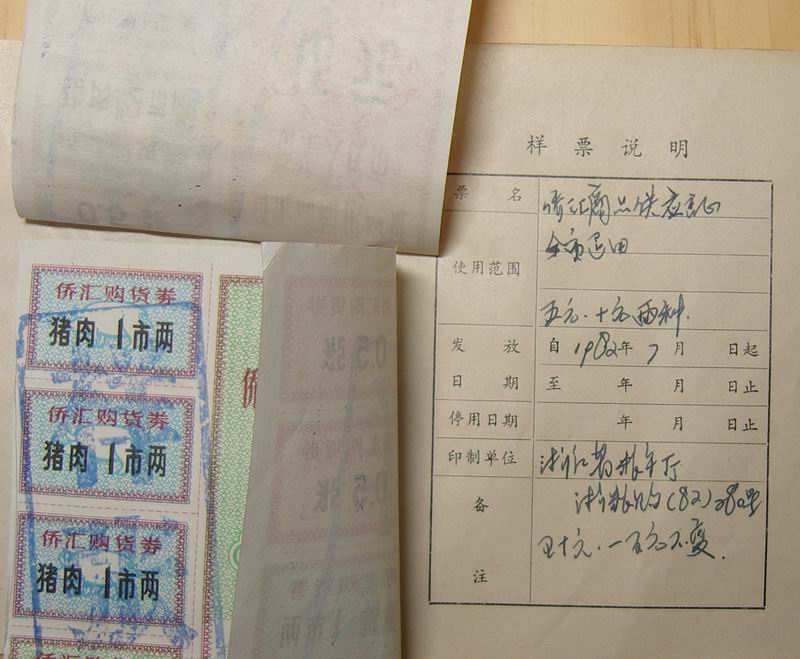 样票说明
票名 侨汇商品供应证
使用范围 全省通用
五元.十元两种.
发放 自1982年7月 日起
日期 至 年 月 日止
停用日期 年 月 日止
印制单位 浙江省粮食厅
备
五十元.一百元不变.
注
侨汇购货券
猪肉1市两
侨汇购货券
猪肉1市两
侨汇购货券
猪肉1市两
侨汇购货券